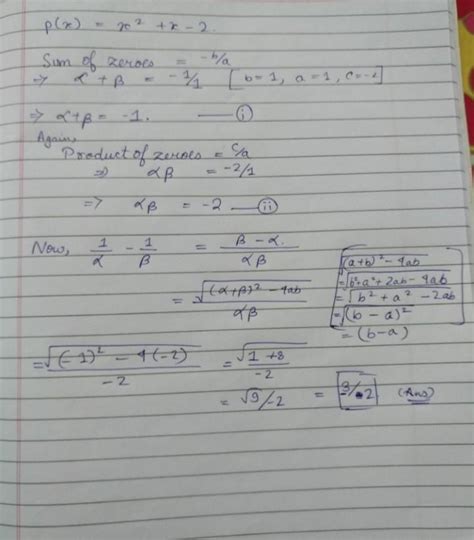 p(x) = x² + x - 2.
Sum of zeroes = -b/a
⇒ α + β = -1/1 [b = 1, a = 1, c = -2]
⇒ α+β = -1. — (i)
Again,
Product of zeroes = c/a
⇒ αβ = -2/1
⇒ αβ = -2 — (ii)
Now, 1/α - 1/β = β - α/αβ
= √(α+β)² - 4ab/αβ
√(a+b)² - 4ab
= √b²+a²+2ab - 4ab
= √b² + a² - 2ab
= √(b - a)²
= (b-a)
= √(-1)² - 4(-2)/-2 = √1+8/-2
= √9/-2 = 3/-2 (Ans)